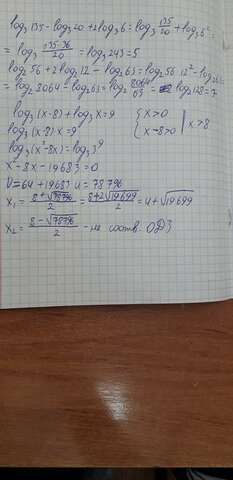 log₃135-log₃20+2log₃6=log₃ 135/20 +log₃6²=
= log₃ 135·36/20 = log₃ 243=5
log₂56+2log₂12-log₂63=log₂56·12²-log₂63=
=log₂8064-log₂63=log₂ 8064/63 = log₂128=7
log₃(x-8)+log₃x=9 { x>0 x-8>0 | x>8
log₃(x-8)x=9
log₃(x²-8x)=log₃3⁹
x²-8x-19683=0
D=64+19683·4=78796
x₁= 8+√78796/2 = 8+2√19699/2 =4+√19699
x₂= 8-√78796/2 - не соотв. ОДЗ